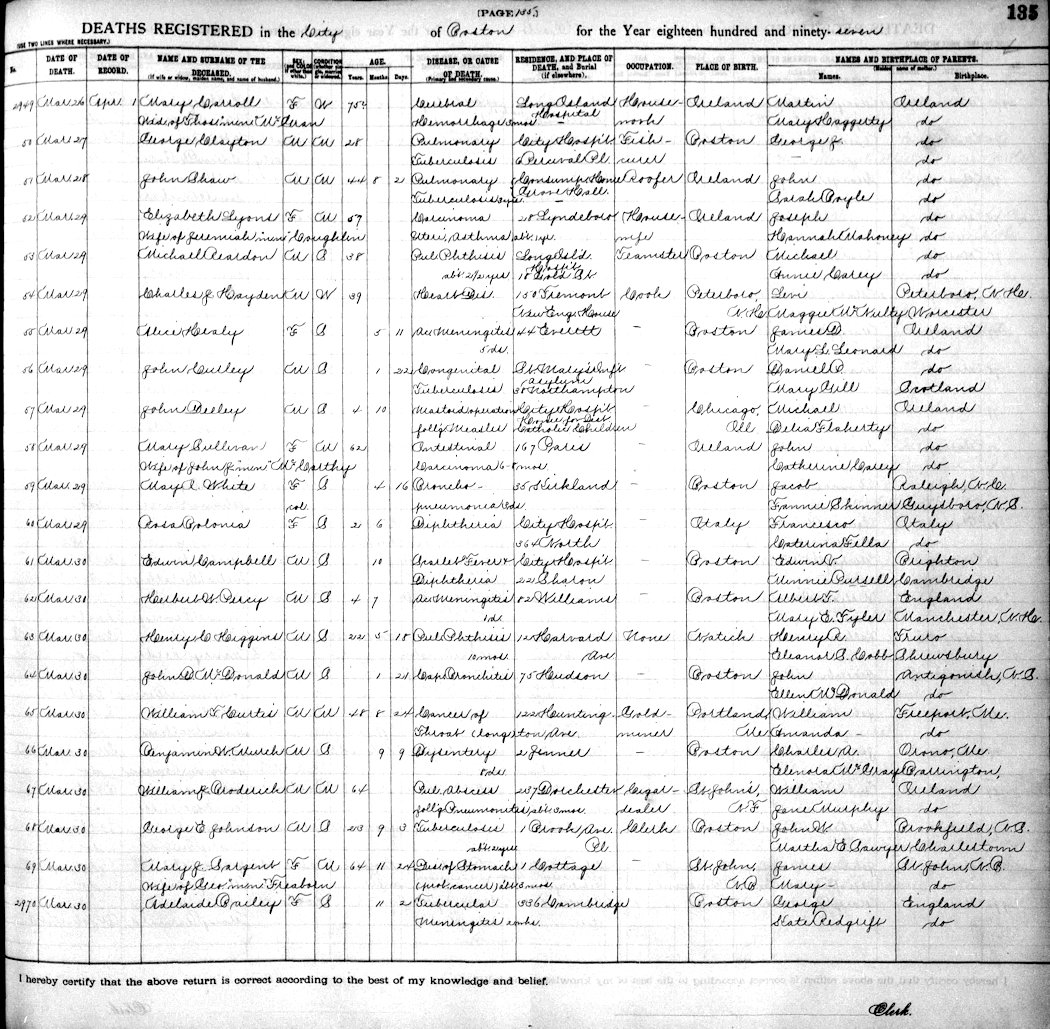 (PAGE 135.)
135
DEATHS REGISTERED in the City of Boston for the Year eighteen hundred and ninety-seven
(USE TWO LINES WHERE NECESSARY.)
No. DATE OF DEATH. DATE OF RECORD. NAME AND SURNAME OF THE DECEASED. (If wife or widow, maiden name, and name of husband.) CONDITION AGE. Years. Months. Days. DISEASE, OR CAUSE OF DEATH. (Primary and secondary cause.) RESIDENCE, AND PLACE OF DEATH, and Burial (if elsewhere). OCCUPATION. PLACE OF BIRTH. NAMES AND BIRTHPLACE OF PARENTS. (Maiden name of mother.) Names. Birthplace.
2949 Mar 26 Apr. 1 Mary Carroll F W 75 Cerebral Long Island House- Ireland Martin Ireland
Hospital
Wid. of Thos. Hemorrhage 3mos — work Mary Haggerty do
50 Mar 27 George Clayton M M 28 Pulmonary City Hospit. Fish- Boston George J. do
Tuberculosis 6 Percival Pl. curer — do
51 Mar 28 John Shaw M M 44 8 2 Pulmonary Consump. Home Roofer Ireland John do
Tuberculosis Grove Hall Sarah Boyle do
52 Mar 29 Elizabeth Lyons F M 57 Carcinoma 28 Lyndeboro House- Ireland Joseph do
Wife of Jeremiah Coughlin Uteri, Asthma abt. 1yr. wife Hannah Mahoney do
53 Mar 29 Michael Reardon M S 38 Pul Phthisis Long Isl'd. Teamster Boston Michael do
Hospit.
abt. 2 1/2 yrs 18 Gold St Annie Carey do
54 Mar 29 Charles J. Hayden M W 39 Heart Dis. 150 Tremont Cook Peterboro, Levi Peterboro, N.H.
New Eng. House N.H. Maggie McNulty Worcester
55 Mar 29 Alice Healy F S 5 11 Ac. Meningitis 44 Everett — Boston James D. Ireland
5 ds. Mary L. Leonard do
56 Mar 29 John Curley M S 1 22 Congenital St. Mary's Inft — Boston Daniel P. do
Asylum
Tuberculosis 30 Northampton Mary Gill Scotland
57 Mar 29 John Deeley M S 4 10 Mastoid operation City Hospit — Chicago, Michael Ireland
foll'g Measles Catholic Children Ill Delia Flaherty do
58 Mar 29 Mary Sullivan F M 62 Intestinal 167 Paris — Ireland John do
Wife of John J. McCarthy Carcinoma 6-8 mos. Catherine Casey do
59 Mar 29 Mary A. White F S 4 16 Broncho- 35 Kirkland — Boston Jacob Raleigh, N.C.
col. pneumonia Fannie Skinner Guysboro, N.S.
60 Mar 29 Rosa Colonia F S 21 6 Diphtheria City Hospit — Italy Francesco Italy
364 North Caterina Filla do
61 Mar 30 Edwin Campbell M S 10 Scarlet Fever & City Hospit — Boston Edwin V. Brighton
Diphtheria 22 Sharon Minnie Pursell Cambridge
62 Mar 30 Herbert W. Percy M S 4 7 Ac. Meningitis 82 Williams — Boston Albert F. England
1 d. Mary E. Fyler Manchester, N.H.
63 Mar 30 Henry C. Higgins M S 22 5 18 Pul Phthisis 124 Harvard None Natick Henry A. Truro
10 mos. Ave Eleanor S. Cobb Shrewsbury
64 Mar 30 John D. McDonald M S 1 21 Cap. Bronchitis 75 Hudson — Boston John Antigonish, N.S.
Ellen McDonald do
65 Mar 30 William F. Curtis M M 48 8 24 Cancer of 122 Hunting- Gold- Portland, William Freeport, Me.
Throat (long) ton Ave. miner Me Amanda — do
66 Mar 30 Benjamin W. Murch M S 9 9 Dysentery 2 Jenner — Boston Charles A. Orono, Me.
8 ds. Elenora McGray Barrington,
67 Mar 30 William J. Broderick M M 64 Pul. Abscess 237 Dorchester Cigar- St. John's, William Ireland
foll'g Pneumonitis, abt. 3 mos. dealer N.F. Jane Murphy do
68 Mar 30 George E. Johnson M S 23 9 3 Tuberculosis 1 Brook Ave. Clerk Boston John W. Brookfield, N.S.
Pl. Martha E. Sawyer Charlestown
69 Mar 30 Mary J. Sargent F M 64 11 24 Dis. of Stomach 1 Cottage St. John, James St. John, N.B.
Wife of Geo. Freeborn (prob. cancer) abt. 3 mos. N.B. Mary — do
2970 Mar 30 Adelaide Bailey F S 11 2 Tubercular 336 Cambridge Boston George England
Meningitis Kate Redgrift do
I hereby certify that the above return is correct according to the best of my knowledge and belief.
Clerk.